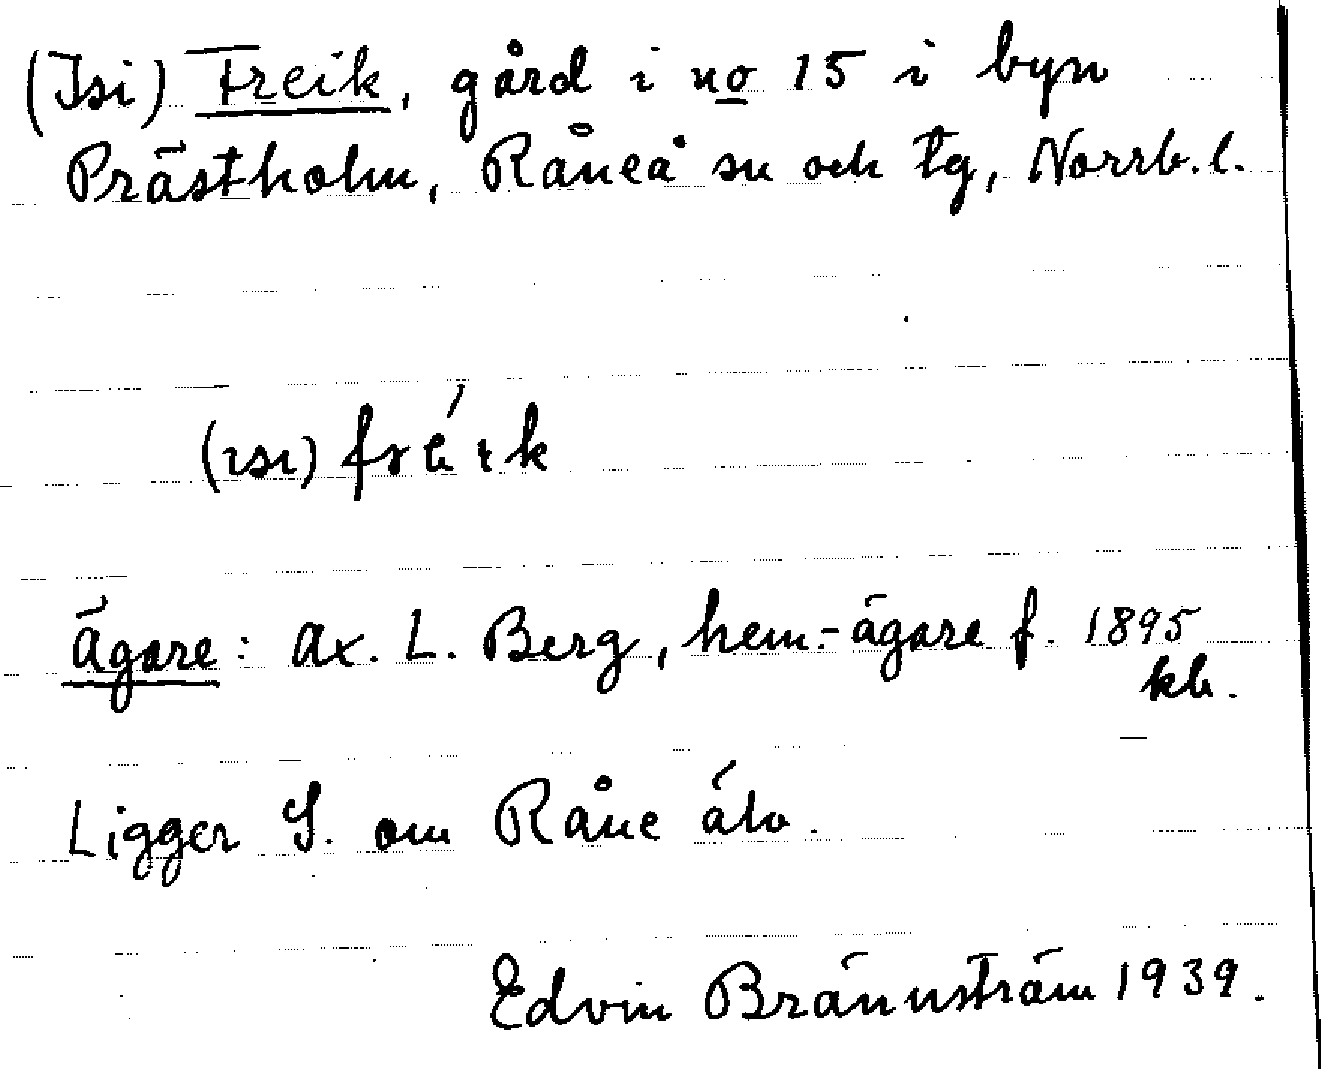 (Isi) Freik, gård i no 15 i byn
Prästholm, Råneå sn och tg, Norrb. l.
(ısı) fre´ık
Ägare: Ax. L. Berg, hem.-ägare f. 1895
kb.
Ligger S. om Råne älv.
Edvin Brännström 1939.